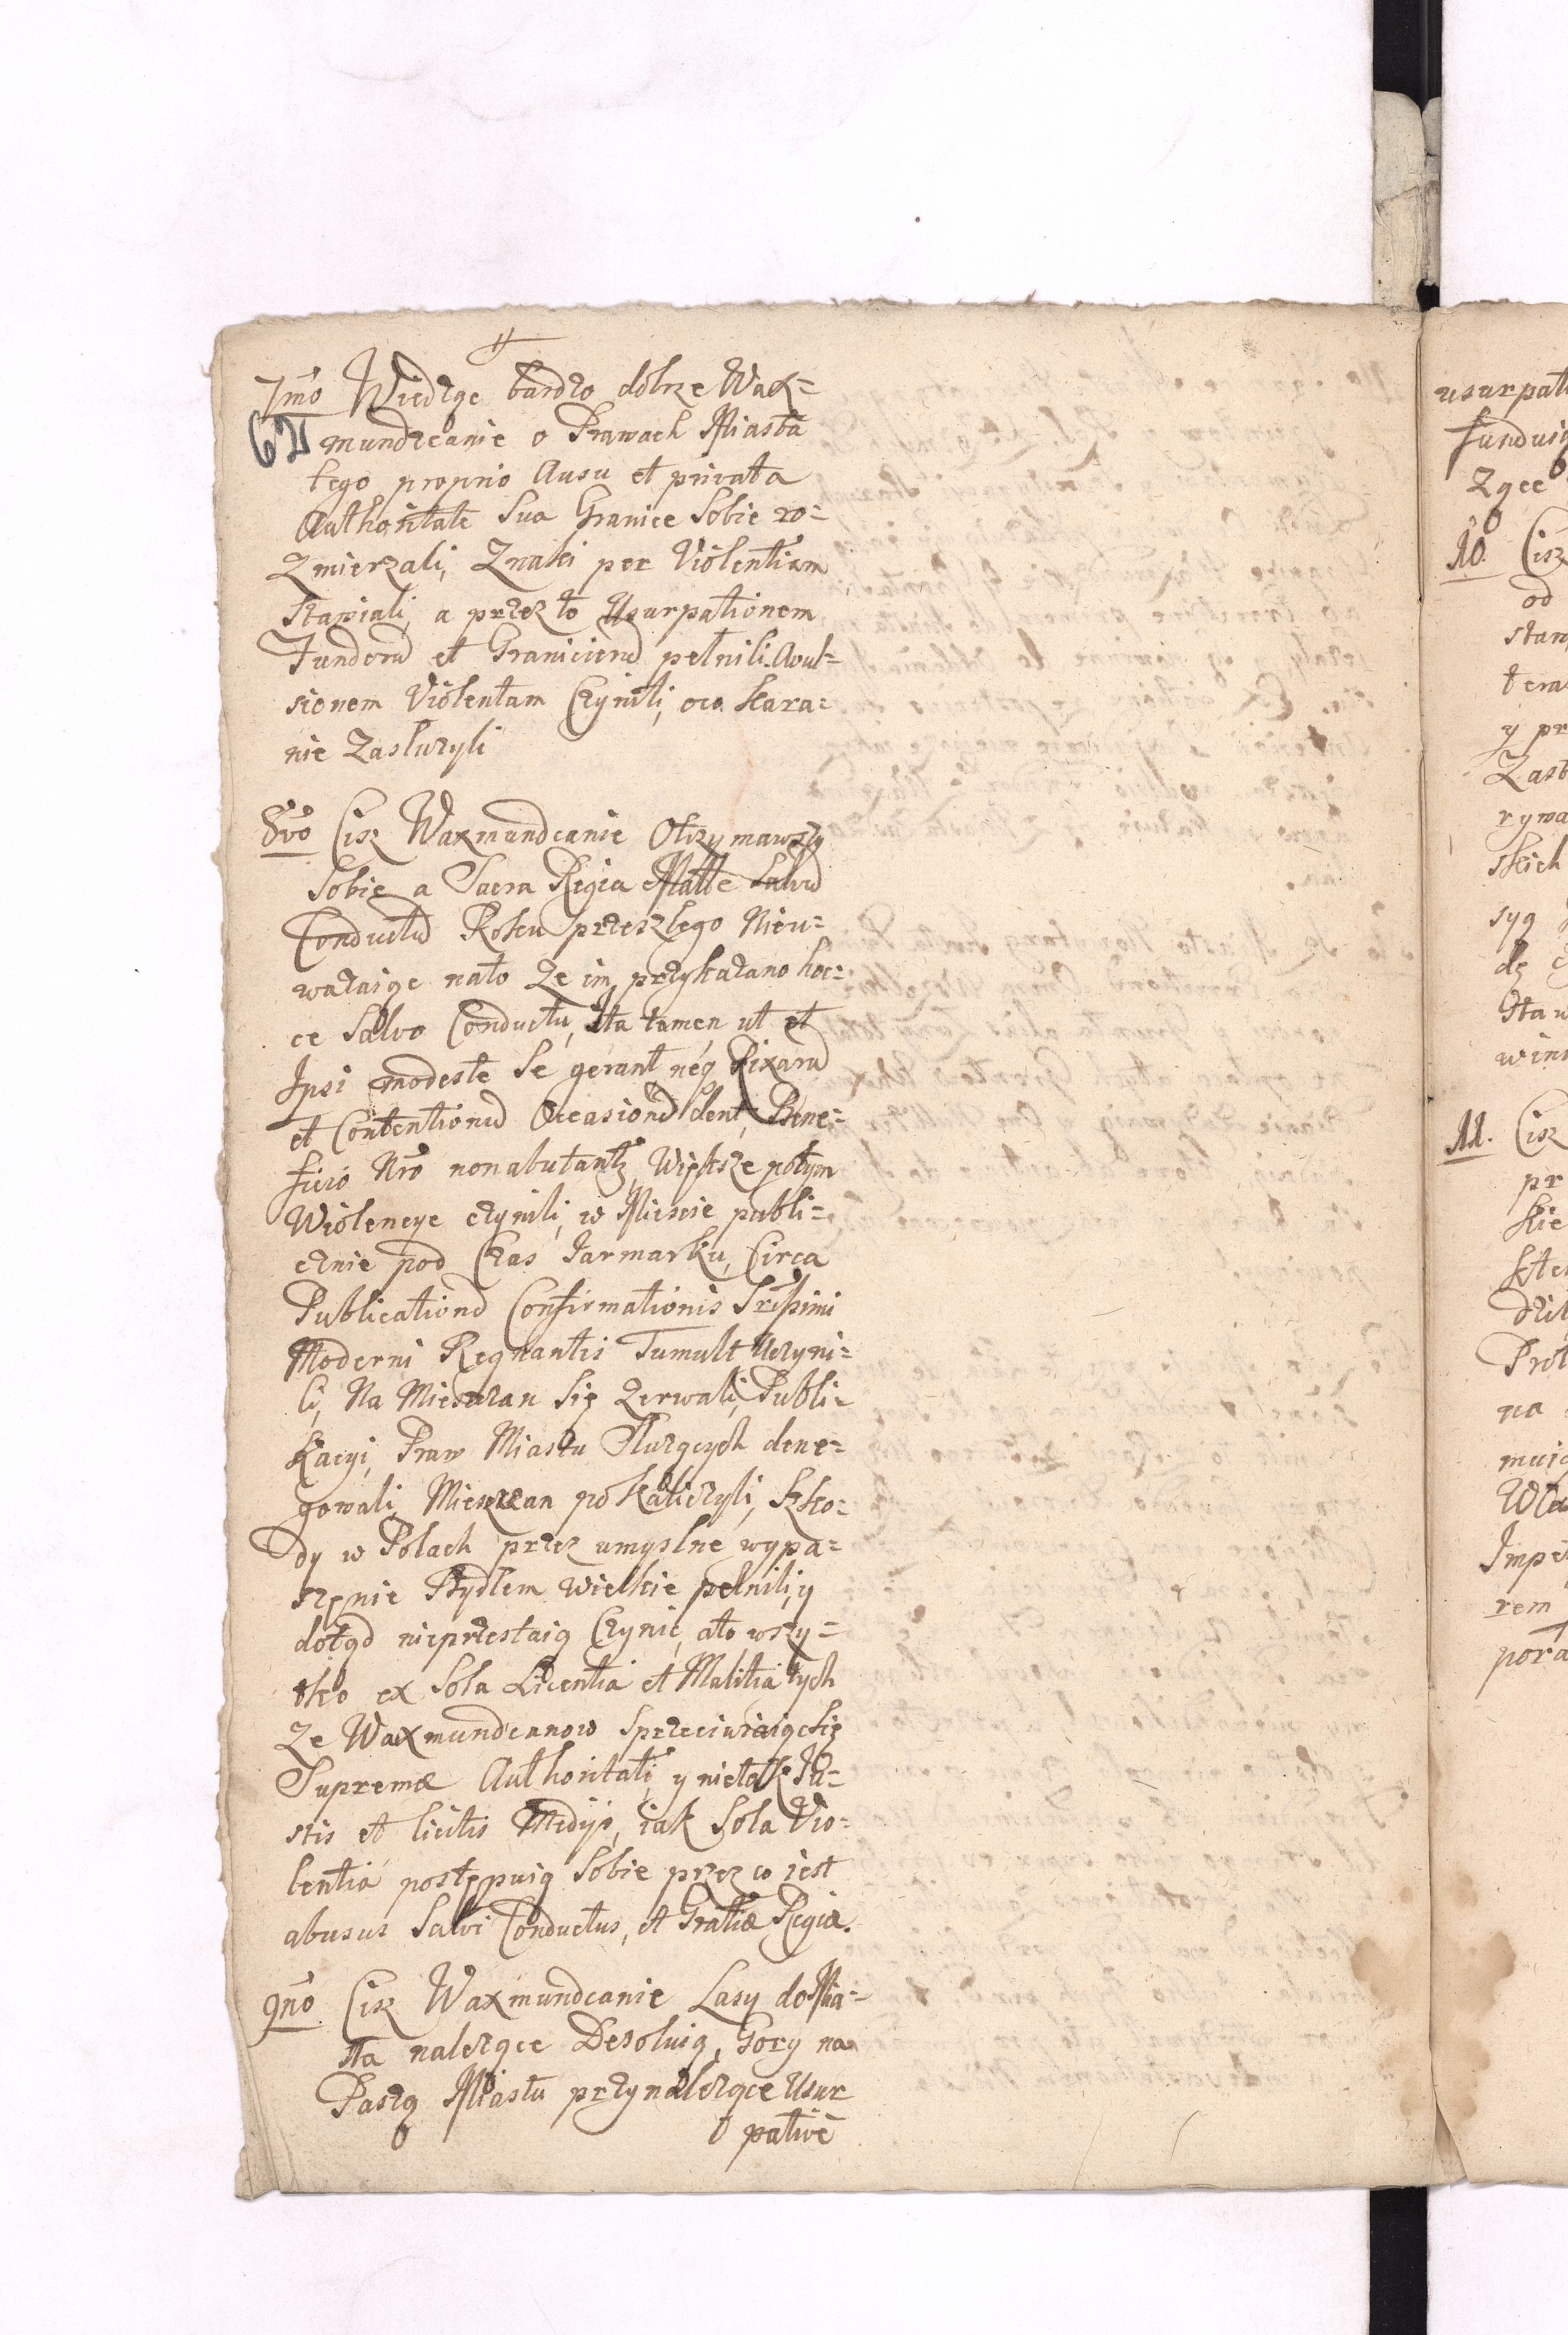 7mo Wiedząc bardzo dobrze Wax=
62 mundzcanie o Prawach Miasta
tego proprio Ausu et privata
Authoritate sua Granice sobie ro=
zmierzali, Znaki per Violentiam
stawiali, a przez to Usurpationem
Fundoru et Graniciend pełnili. Avul=
sionem Violentam Czynili, oco kara=
nie Zasłuzyli
8vo Cisz Waxmundcanie Otrzymawszy
sobie a Sacra Regia Matte Salvu
Conductu Roku przeszłego Nieu=
wazaiąc nato ze im przykazano hoc=
ce Salvo Conductu, Ita tamen ut et
Ipsi modeste se gerant neq Rixaru
et Contentionu Occasione dent, Bene=
ficio Nro non abutantz, Większe potym
Wiolencye czynili, w Miescie publi=
cznie pod Czas Jarmarku, Circa
Publicatione Confirmationis Srzpimi
Moderni Regnantis Tumult Uczyni=
li, Na Mieszczan się zerwali, Publi=
kacyi, Praw Miastu Słuzących dene=
gowali, Mieszczan pokaliczyli, szko=
dy w Polach przez umyslne wypa=
szenie Bydłem wielkie pełnili, y
dotąd nieprzestaią Czynic, ato wszy=
tko ex Sola Licentia et Malitia tych
ze Waxmundcanow sprzeciwiaiąc się
Supremæ Authoritati, y nietak Ju=
stis et licitis Medijs, iak Sola Vio=
lentia postępuią sobie przez co iest
abusus Salvi Conductus, et Gratiæ Regiæ.
9no Cisz Waxmundcanie Lasy do Mia=
sta nalezące Desoluią, Gory na
Paszą Miastu przynalezące Usur
pative
usurpati
fundui
zące
10. Cisz
od
stan
tera
y pr
Zast
rywa
skich
syą
dę
Sta
wini
11. Cisz
pr
skie
kte
dzil
Prot
na
muią
Wła
Impe
rem
pora